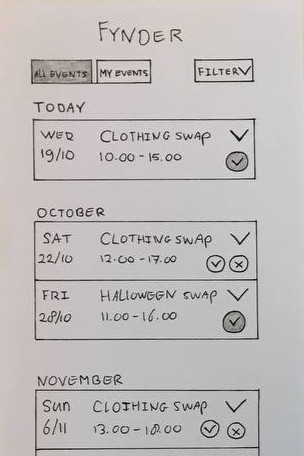 FYNDER
ALL EVENTS MY EVENTS FILTER
TODAY
WED CLOTHING SWAP
19/10 10.00-15.00
OCTOBER
SAT CLOTHING SWAP
22/10 12.00-17.00
FRI HALLOWEEN SWAP
28/10 11.00-16.00
NOVEMBER
SUN CLOTHING SWAP
6/11 13.00-18.00